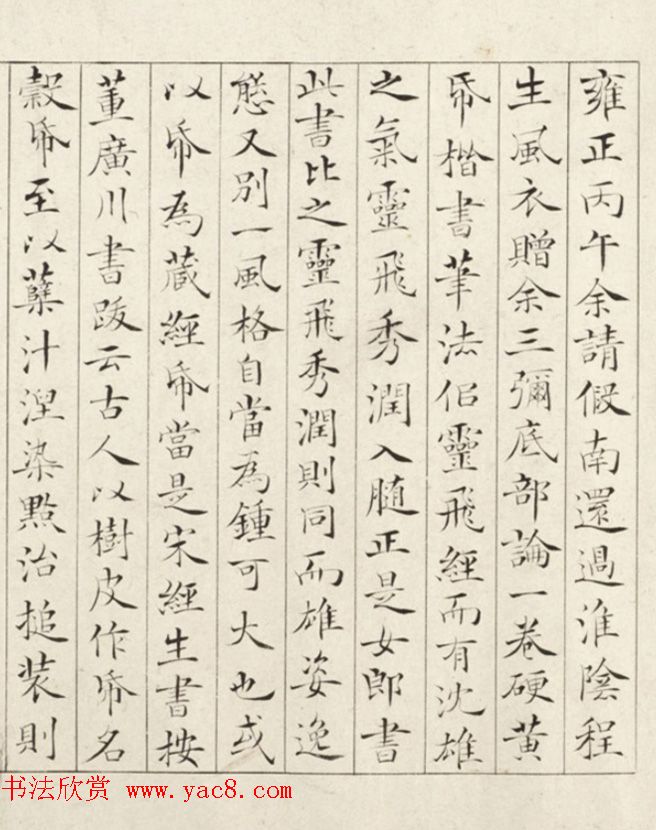 雍正丙午余請假南還過淮陰程
生風衣贈余三彌底部論一卷硬黄
帋楷書筆法侣靈飛經而有沈雄
之氣靈飛秀潤入髄正是女郎書
此書比之靈飛秀潤則同而雄姿逸
態又別一風格自當為鍾可大也或
以帋為蔵經帋當是宋經生書按
董廣川書跋云古人以樹皮作帋名
榖帋至以蘖汁涅染㸃治搥装則
书法欣赏 www.yac8.com